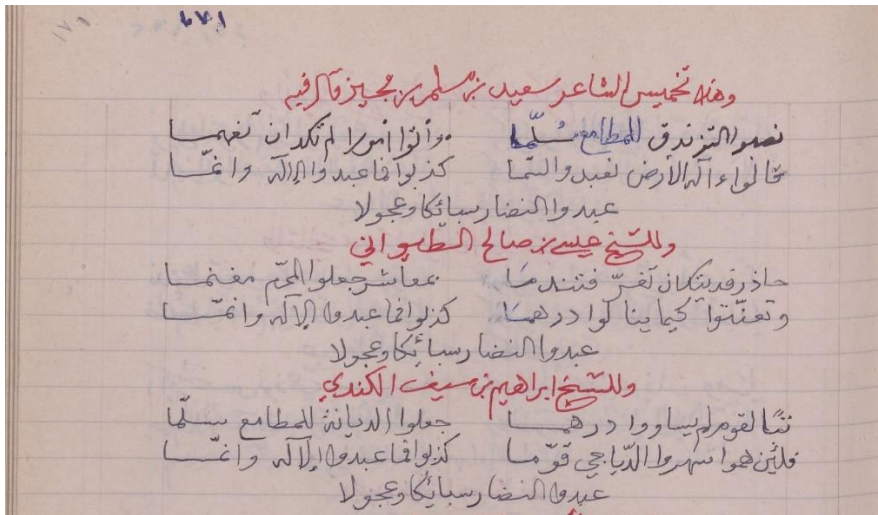 ١٧١
وهذا تخميس الشاعر سعيد بن مسلم بن مجيز قال فيه
نصبوا التزندق للمطامع سُلّما وأتوا أمورا لم تكد ان تفهما
قالوا ءآله الأرض نعبد والسّما كذبوا فما عبدوا الإاله وانمّا
عبدوا النضار سبائكا وعجولا
وللشيخ عيسى بن صالح الطيواني
حاذر فديتك ان تغرّ فتندمَا بمعاشر جعلوا المحرّم مغنما
وتعنّتوا كيما ينالوا درهمَا كذبوا فما عبدوا الإاله وانمّا
عبدوا النضار سبائكا وعجولا
وللشيخ ابراهيم بن سيف الكندي
تبًا لقوم لم يساووا درهما جعلوا الديانة للمطامع سلّما
فلئن هموا سهروا الدّياجي قوّما كذبوا فما عبدوا الإاله وانمّا
عبدوا النضار سبائكا وعجولا